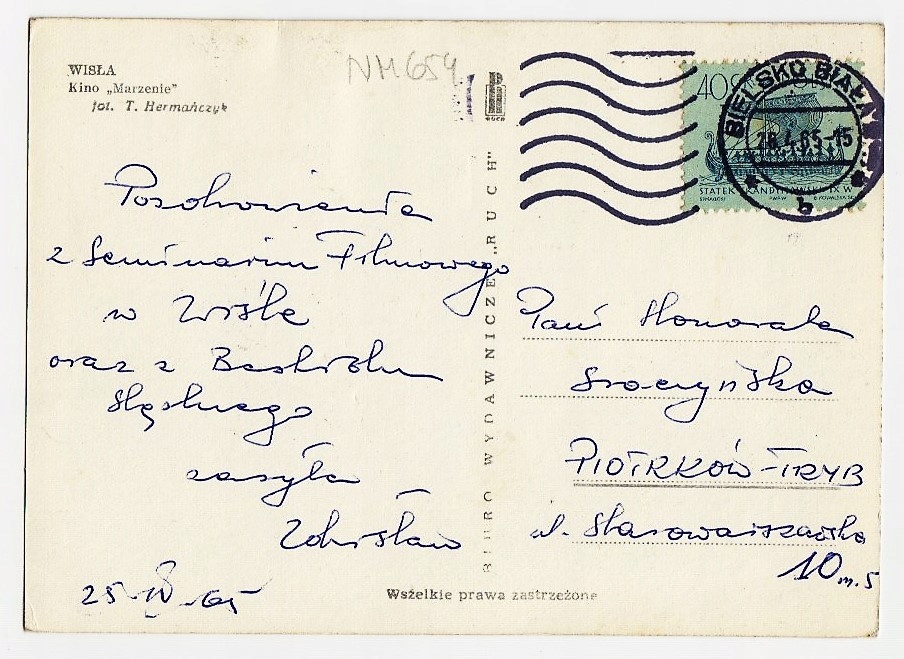 WISŁA
Kino „Marzenie"
fot. T. Hermańczyk
NM 659
RUCH
40 GR
BIELSKO BIAŁA
65-15
b
STATEK SKANDYNAWSKI IX W
PWPW
Pozdrowienia
z Seminarium Filmowego
w Wiśle
oraz z Beskidu
Śląskiego
zasyła
Zdzisław
25-IV-65
BIURO WYDAWNICZE „RUCH"
Pani Honorata
PIOTRKÓW-TRYB
ul. Starowarszawska
10 m. 5
Wszelkie prawa zastrzeżone